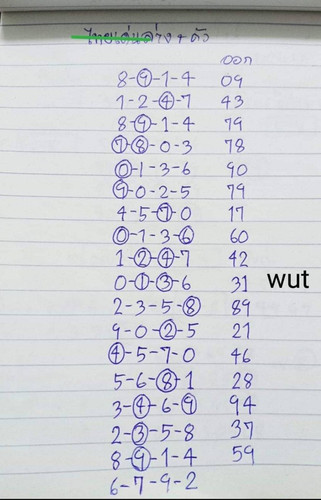 ไทยเด่นล่าง + ตัว
ออก
8-9-1-4 09
1-2-4-7 43
8-9-1-4 79
7-8-0-3 78
0-1-3-6 90
9-0-2-5 79
4-5-7-0 17
0-1-3-6 60
1-2-4-7 42
0-1-3-6 31 wut
2-3-5-8 89
9-0-2-5 21
4-5-7-0 46
5-6-8-1 28
3-4-6-9 94
2-3-5-8 37
8-9-1-4 59
6-7-9-2